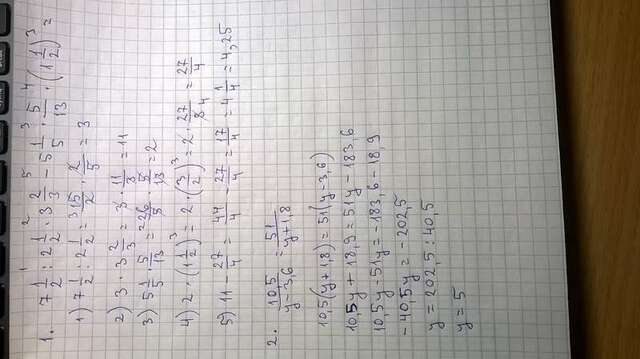 1. 7 1/2 : 2 1/2 · 3 2/3 - 5 1/5 · 5/13 · (1 1/2)³ =
1) 7 1/2 : 2 1/2 = 15/2 · 2/5 = 3
2) 3 · 3 2/3 = 3 · 11/3 = 11
3) 5 1/5 · 5/13 = 26/5 · 5/13 = 2
4) 2 · (1 1/2)³ = 2 · (3/2)³ = 2 · 27/8 = 27/4
5) 11 - 27/4 = 44/4 - 27/4 = 17/4 = 4 1/4 = 4,25
2. 10,5/(y-3,6) = 51/(y+1,8)
10,5(y+1,8) = 51(y-3,6)
10,5y + 18,9 = 51y - 183,6
10,5y - 51y = -183,6 - 18,9
-40,5y = -202,5
y = 202,5 : 40,5
y = 5